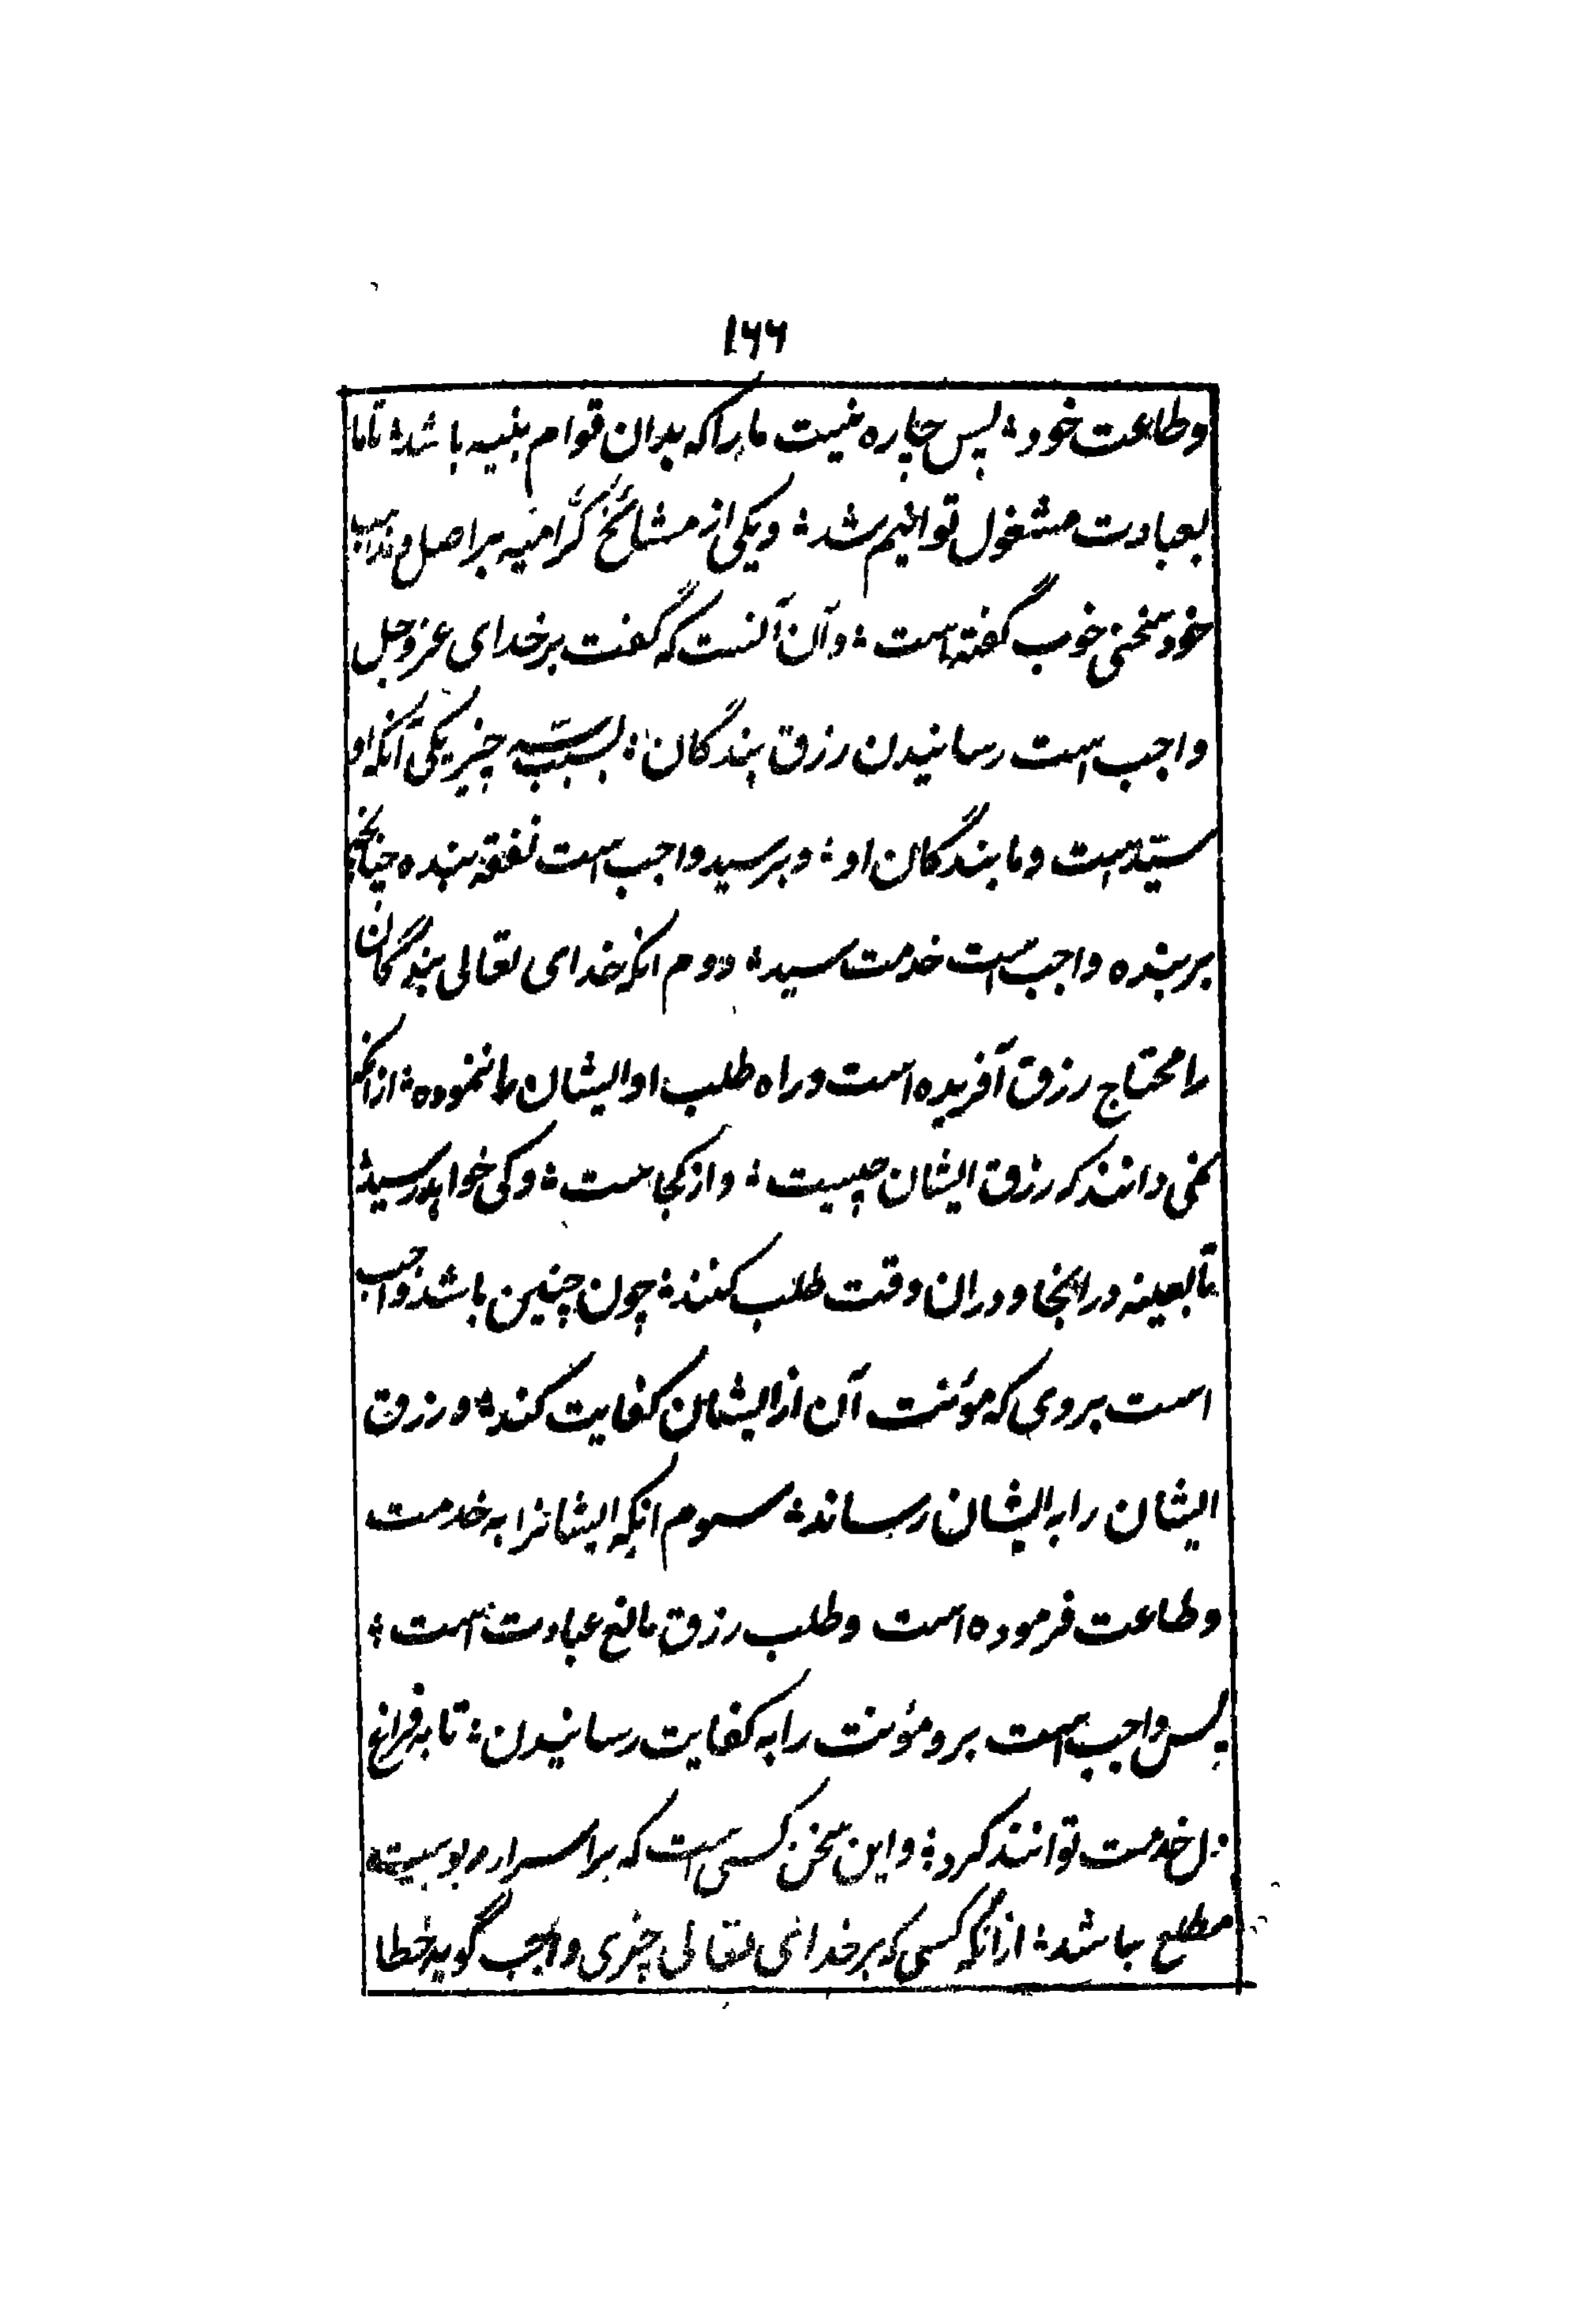 ۱۶۶
وطاعت خود؛ پس چاره نیست ما را که بدان قوام بنیه باشد؛ تاما
بعبادت مشغول توانیم شد؛ ویکی از مشائخ کرّامیه بر اصل و مذهب
خود سخنی خوب گفته است؛ وآن آنست که گفت بر خدای عز وجل
واجب است رسانیدن رزق بندگان؛ بسبب سه چیز یکی آنکه او
سیّد است وما بندگان او؛ وبر سید واجب است نفقه بنده چنانچه
بر بنده واجب است خدمت سید؛ دوم انکه خدای تعالی بندگان
را محتاج رزق آفریده است وراه طلب او ایشان را ننموده؛ از انکه
نمی دانند که رزق ایشان چیست؛ واز کجاست؛ وکی خواهد رسید؛
تا بعینه در انجا ودران وقت طلب کنند؛ چون چنین باشد واجب
است بروی که مؤنت آن از ایشان کفایت کند؛ ورزق
ایشان را به ایشان رساند؛ سوم انکه ایشانرا به خدمت
وطاعت فرموده است وطلب رزق مانع عبادت است؛
پس واجب است برو مؤنت را به کفایت رسانیدن؛ تا به فراغ
دل خدمت توانند کرد؛ واین سخن کسی است که بر اسرار ربوبیت
مطلع نباشد؛ از انکه کسی که بر خدای تعالی چیزی واجب گوید خطا